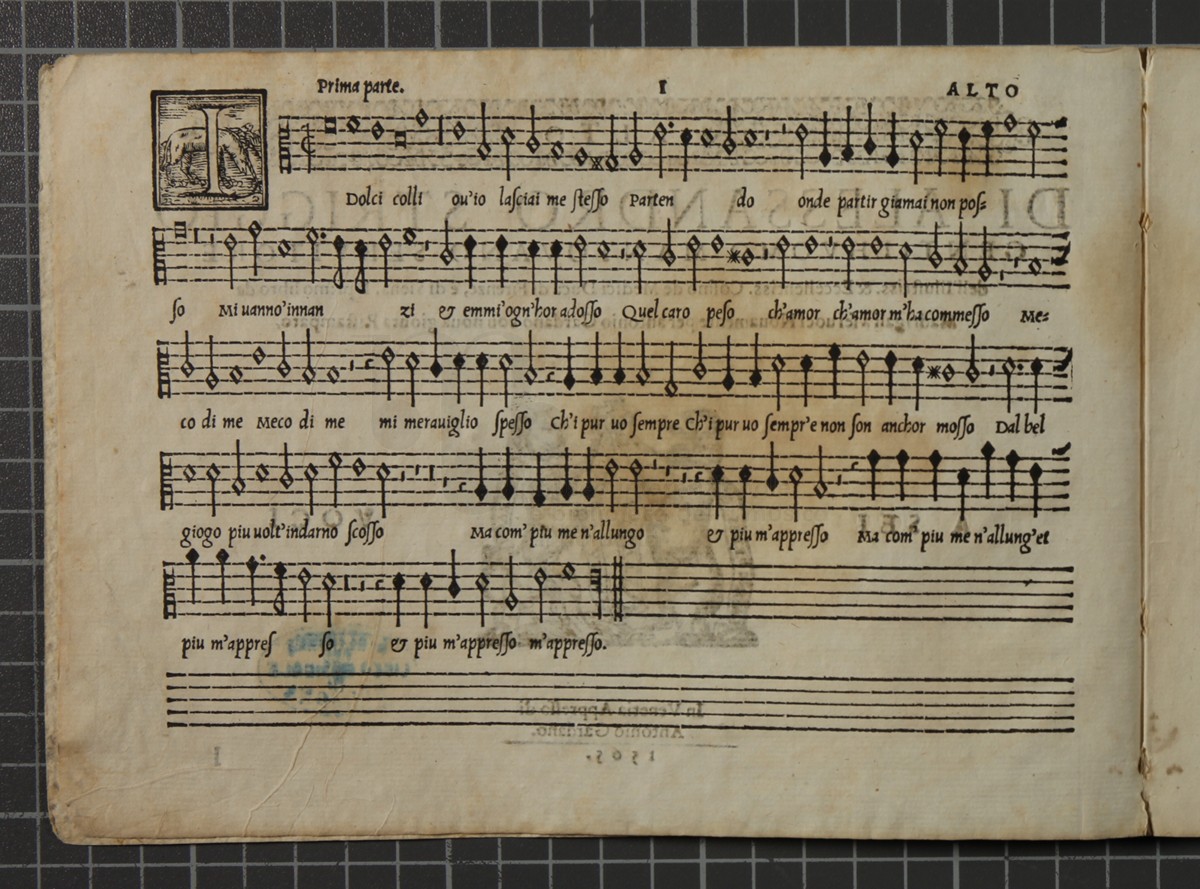 Prima parte. I ALTO
I Dolci colli ou'io lasciai me stesso Parten do onde partir giamai non pos=
so Mi uanno'innan zi & emmi'ogn'hor adosso Quel caro peso ch'amor ch'amor m'ha commesso Me=
co di me Meco di me mi merauiglio spesso Ch'i pur uo sempre Ch'i pur uo sempr'e non son anchor mosso Dal bel
giogo piu uolt'indarno scosso Ma com' piu me n'allungo & piu m'appresso Ma com' piu me n'allung'et
piu m'appres so & piu m'appresso m'appresso.